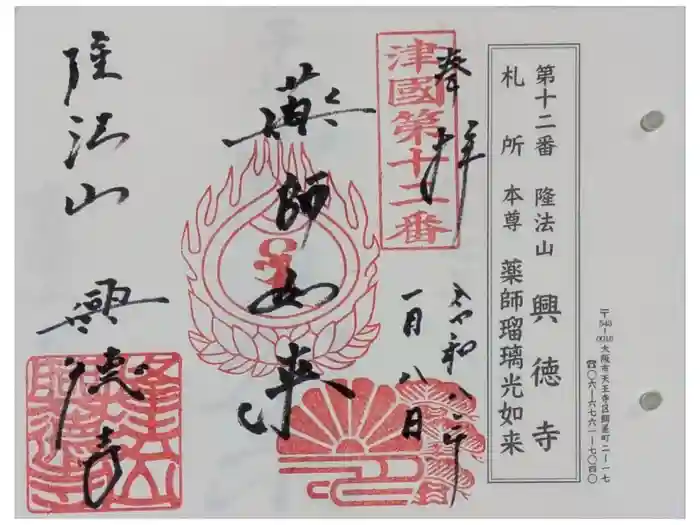 〒543-0016 大阪市天王寺区餌差町二-一七
☎〇六-六七六一-七〇四〇
第十二番 隆法山 興徳寺
札所本尊 薬師瑠璃光如来
奉拝
津國第十二番
令和八年
一月八日
薬師如来
隆法山 興徳寺